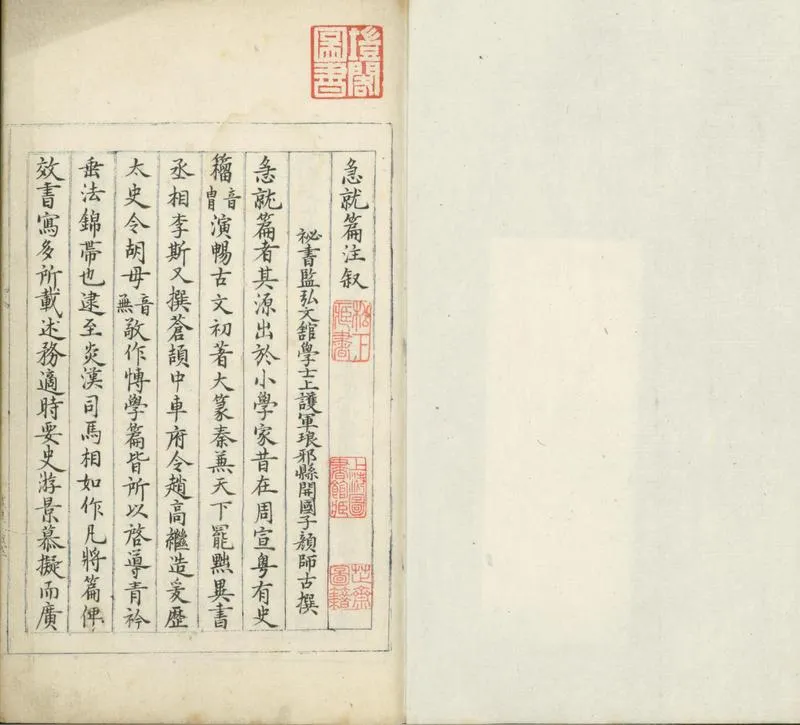 急就篇注叙
祕書監弘文舘學士上護軍琅邪縣開國子顏師古撰
急就篇者其源出於小學家昔在周宣粤有史
籀音胄演暢古文初著大篆秦兼天下罷黜異書
丞相李斯又撰蒼頡中車府令趙高繼造爰歷
太史令胡毋音無敬作愽學篇皆所以啓導青衿
垂法錦帶也逮至炎漢司馬相如作凡將篇俾
效書寫多所載述務適時要史游景慕擬而廣
閣圖書
松下藏書
上海圖書館藏
芷齋圖籍